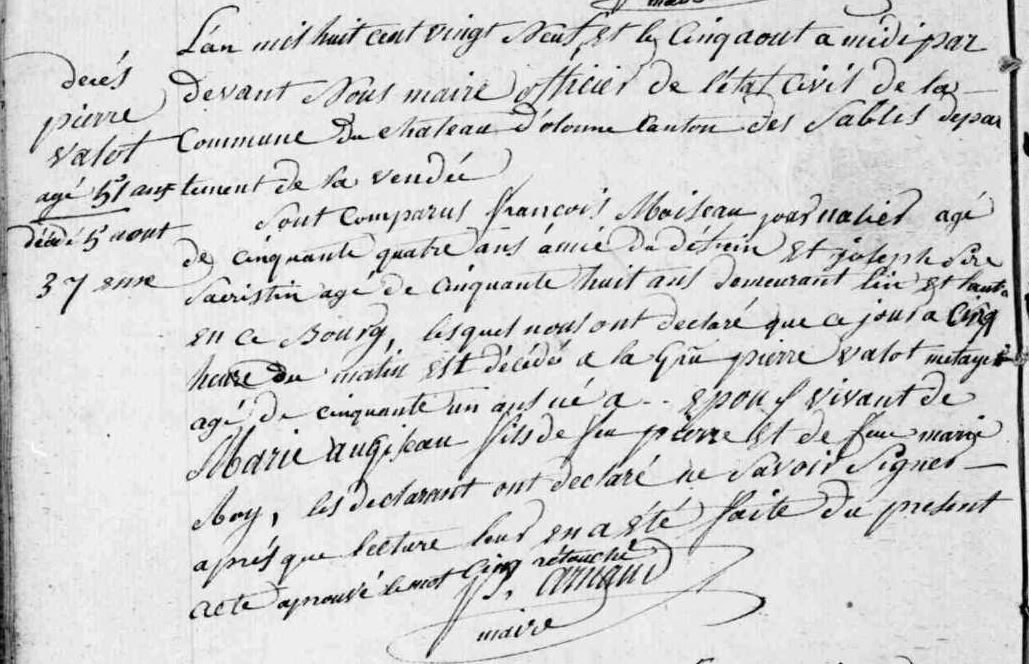 décés
pierre
valot
agé 51 ans
décédé 5 aout
37 eme
L'an mil huit cent vingt Neuf Et le Cinq aout a midi par
devant Nous maire officier de l'état Civil de la
Commune du chateau d'olonne Canton des Sables depar
tement de la vendée
Sont Comparus françois Moiseau journalier agé
de cinquante quatre ans amie du défunt Et joseph
Sacristin agé de cinquante huit ans demeurant l'un Et l'autre
en ce Bourg, lesquel nous ont declaré que ce jour a Cinq
heure du matin est décédé a la pierre valot metayer
agé de cinquante un ans né a -- Epoux vivant de
Marie augiseau fils de feu pierre Et de feue marie
Roy, les declarant ont declaré ne Savoir Signer
aprés que lecture leur en a été faite du present
acte aprouvé le mot Cinq retouché
arnaud
maire